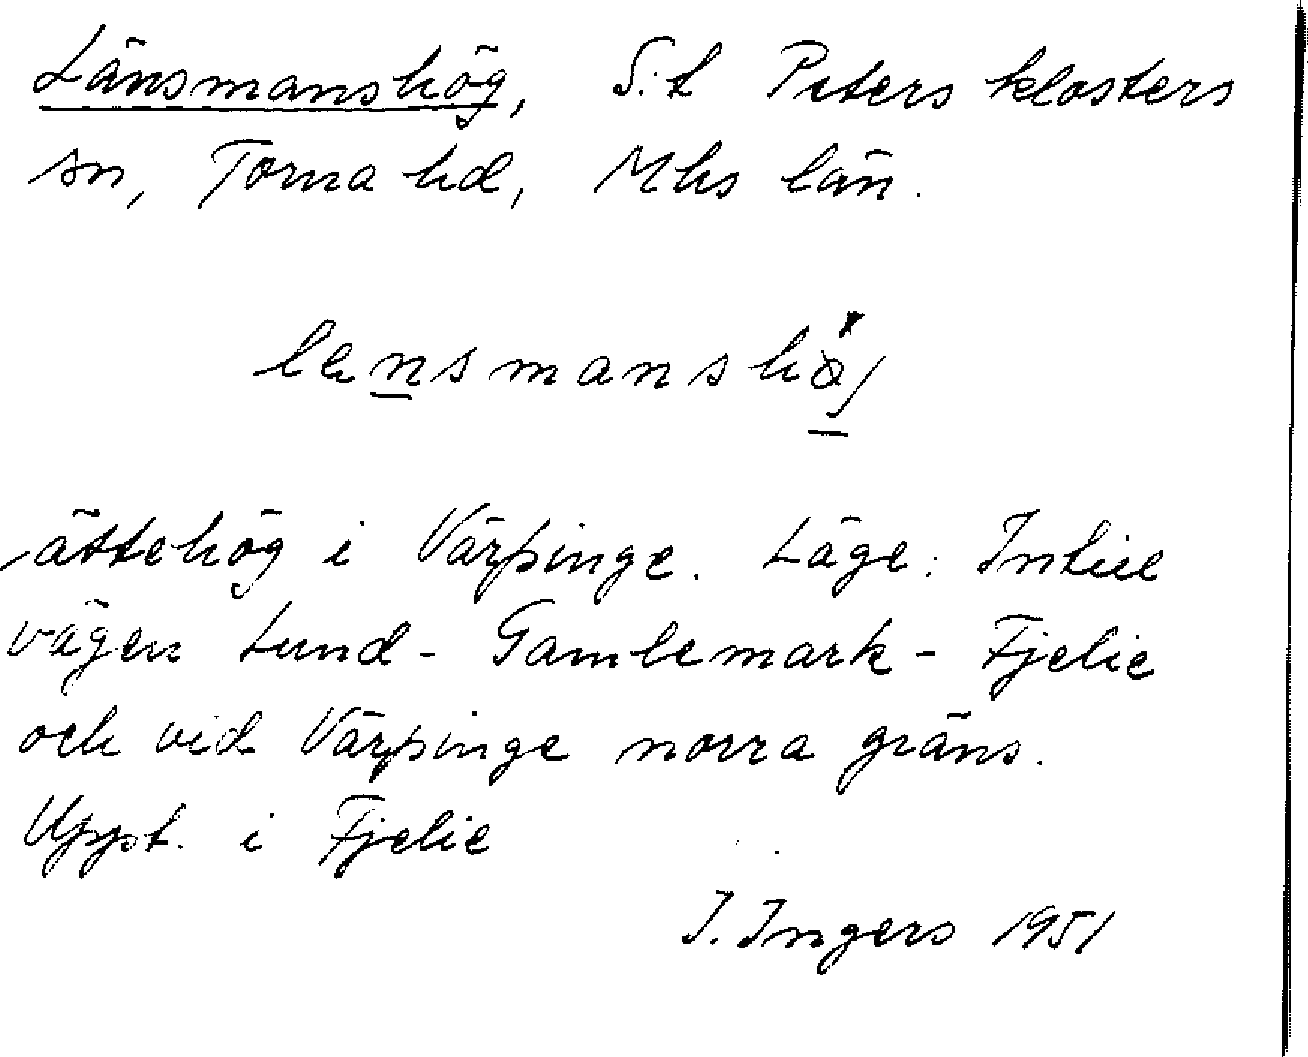 Länsmanshög, S:t Peters klosters
sn, Torna hd, Mhs län.
ättehög i Värpinge. Läge: Intill
vägen Lund - Gamlemark - Fjelie
och vid Värpinge norra gräns.
Uppt. i Fjelie
I. Ingers 1951